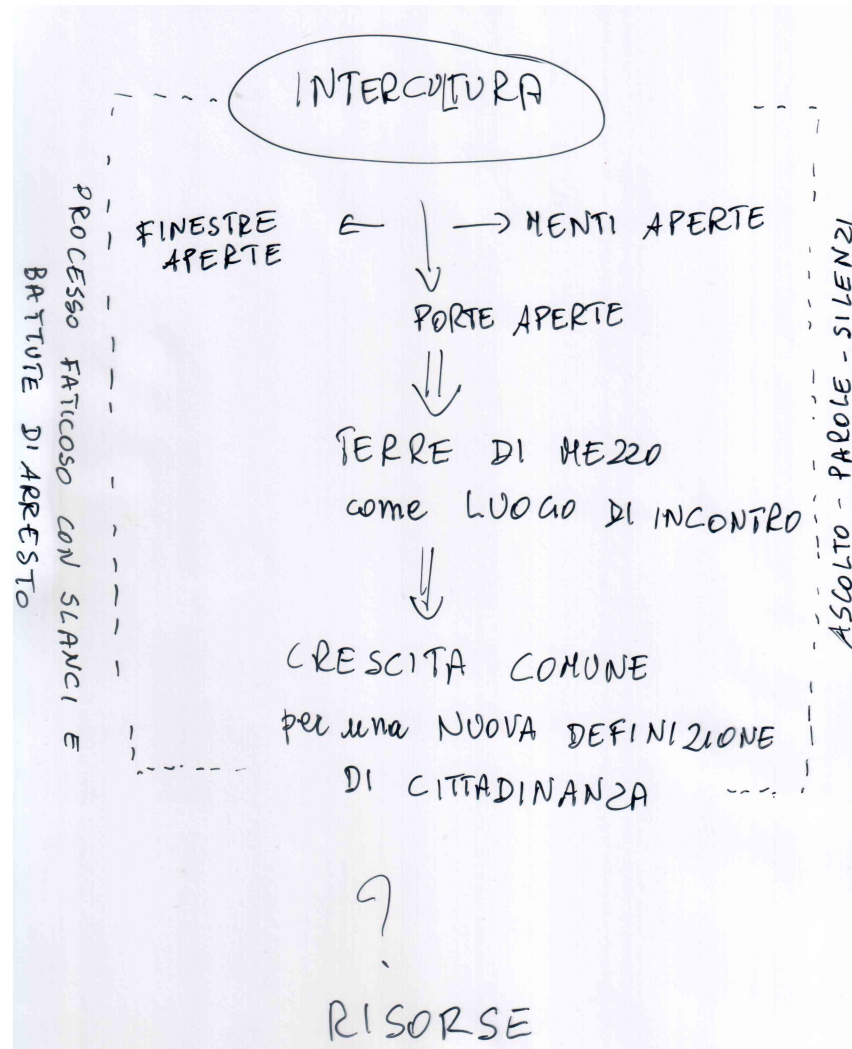 INTERCULTURA
FINESTRE
APERTE
MENTI APERTE
PORTE APERTE
TERRE DI MEZZO
come LUOGO DI INCONTRO
CRESCITA COMUNE
per una NUOVA DEFINIZIONE
DI CITTADINANZA
?
RISORSE
PROCESSO FATICOSO CON SLANCI E
BATTUTE DI ARRESTO
ASCOLTO - PAROLE - SILENZI